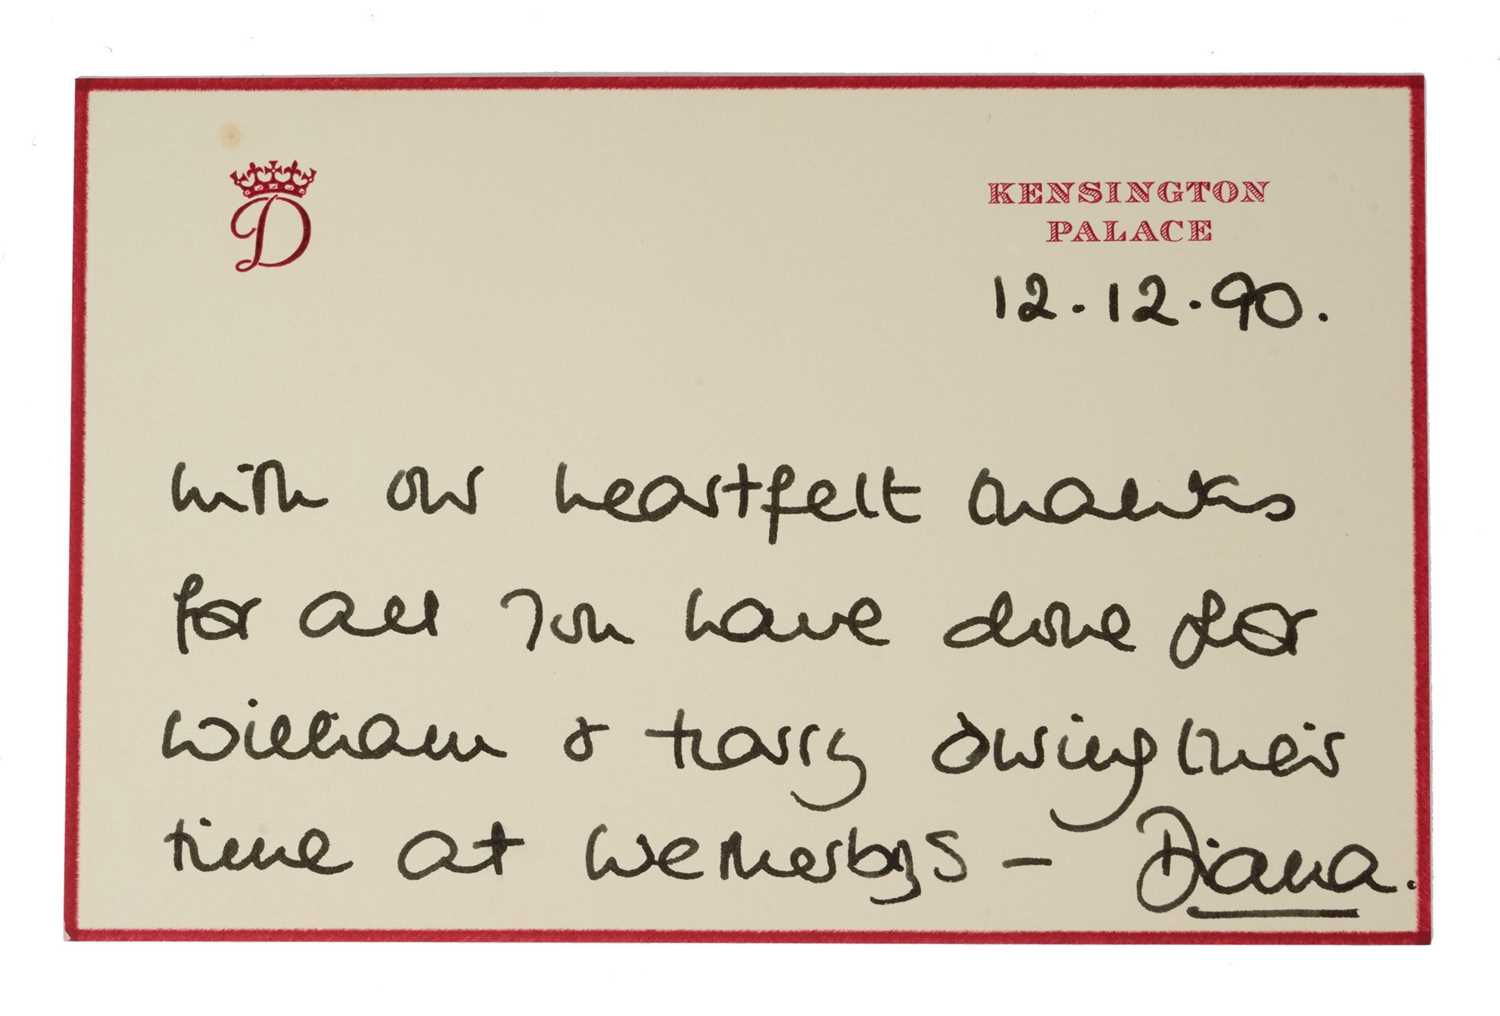 D
KENSINGTON
PALACE
12.12.90.
With our heartfelt thanks
for all you have done for
William & Harry during their
time at Wetherbys – Diana.